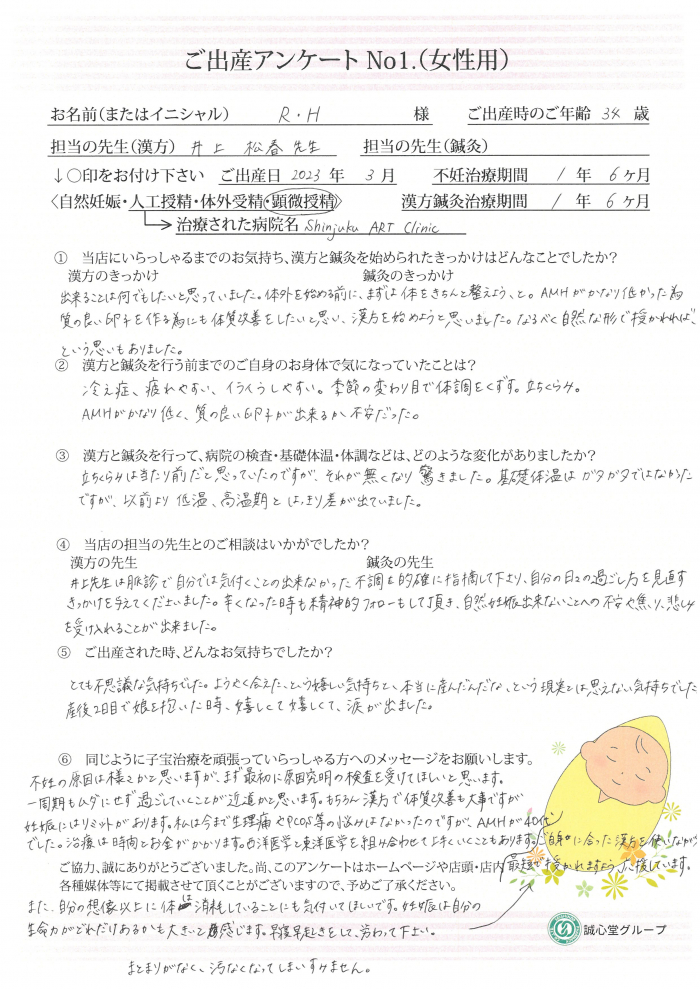 ご出産アンケート No1.（女性用）
お名前（またはイニシャル） R・H 様 ご出産時のご年齢 34 歳
担当の先生（漢方） 井上 松春 先生 担当の先生（鍼灸）
↓〇印をお付け下さい ご出産日 2023 年 3 月 不妊治療期間 1 年 6 ヶ月
〈自然妊娠・人工授精・体外受精・顕微授精〉 漢方鍼灸治療期間 1 年 6 ヶ月
治療された病院名 Shinjuku ART Clinic
① 当店にいらっしゃるまでのお気持ち、漢方と鍼灸を始められたきっかけはどんなことでしたか？
漢方のきっかけ 鍼灸のきっかけ
出来ることは何でもしたいと思っていました。体外を始める前に、まずは体をきちんと整えよう、と。AMHがかなり低かった為
質の良い卵子を作る為にも体質改善をしたいと思い、漢方を始めようと思いました。なるべく自然な形で授かれれば、
という思いもありました。
② 漢方と鍼灸を行う前までのご自身のお身体で気になっていたことは？
冷え症、疲れやすい、イライラしやすい。季節の変わり目で体調をくずす。立ちくらみ。
AMHがかなり低く、質の良い卵子が出来るか不安だった。
③ 漢方と鍼灸を行って、病院の検査・基礎体温・体調などは、どのような変化がありましたか？
立ちくらみは当たり前だと思っていたのですが、それが無くなり驚きました。基礎体温はガタガタではなかった
ですが、以前より低温、高温期とはっきり差が出ていました。
④ 当店の担当の先生とのご相談はいかがでしたか？
漢方の先生 鍼灸の先生
井上先生は脈診で自分では気付くことの出来なかった不調を的確に指摘して下さり、自分の日々の過ごし方を見直す
きっかけを与えてくださいました。辛くなった時も精神的フォローもして頂き、自然妊娠出来ないことへの不安や焦り、悲しみ
を受け入れることが出来ました。
⑤ ご出産された時、どんなお気持ちでしたか？
とても不思議な気持ちでした。ようやく会えた、という嬉しい気持ちと、本当に産んだんだな、という現実とは思えない気持ちでした
産後2日目で娘を抱いた時、嬉しくて嬉しくて、涙が出ました。
⑥ 同じように子宝治療を頑張っていらっしゃる方へのメッセージをお願いします。
不妊の原因は様々かと思いますが、まず最初に原因究明の検査を受けてほしいと思います。
一周期もムダにせず過ごしていくことが近道かと思います。もちろん漢方で体質改善も大事ですが
妊娠にはリミットがあります。私は今まで生理痛やPCOS等の悩みはなかったのですが、AMHが40代
でした。治療は時間とお金がかかります。西洋医学と東洋医学を組み合わせて上手くいくこともあります。ご自身に合った漢方を使いながら
ご協力、誠にありがとうございました。尚、このアンケートはホームページや店頭・店内 最短で授かれますよう、応援しています。
各種媒体等にて掲載させて頂くことがございますので、予めご了承ください。
また、自分の想像以上に体は消耗していることにも気付いてほしいです。妊娠は自分の
生命力がどれだけあるかも大きいと感じます。早寝早起きをして、労わって下さい。
誠心堂グループ
まとまりがなく、汚くなってしまいすみません。